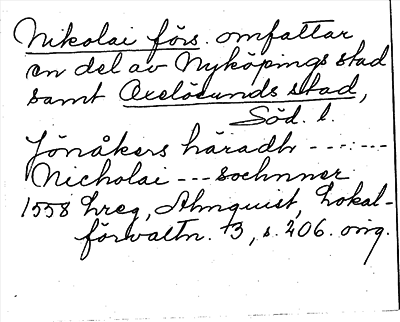 Nikolai förs. omfattar
en del av Nyköpings stad
samt Oxelösunds stad,
Söd. l.
Jönåkers häradh - - - : - - -
Nicholai - - - sochnner
1558 Lreg, Almquist, Lokal-
förvaltn. 3, s. 206. orig.